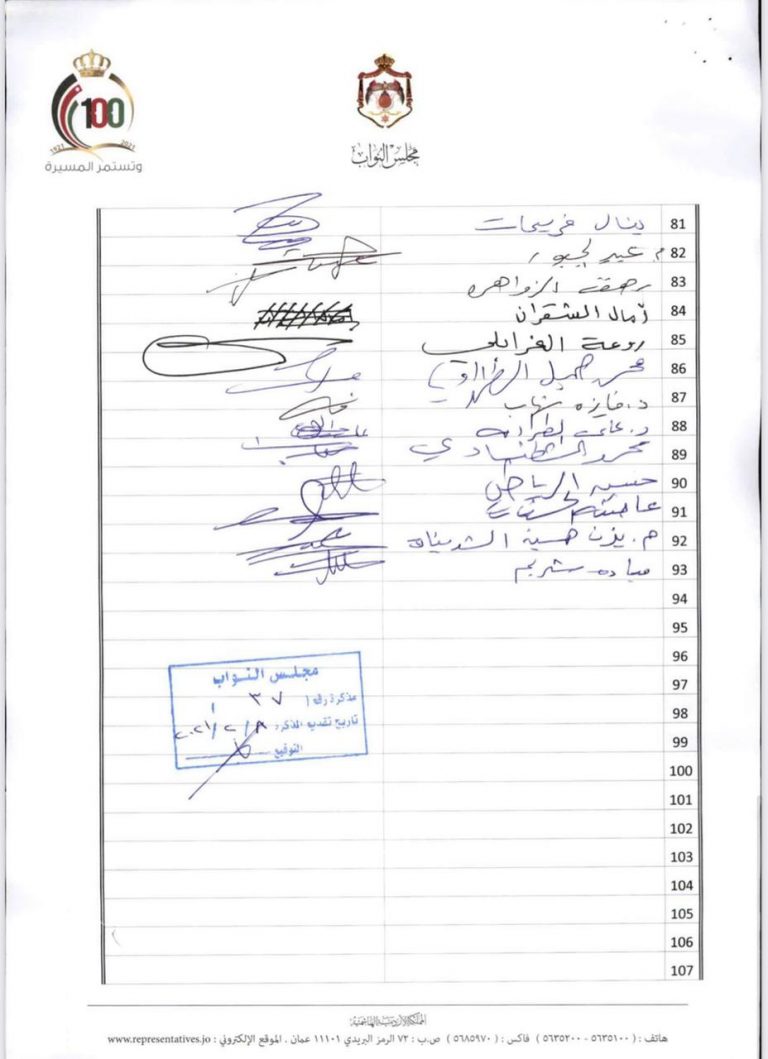 100
1921 2021
وتستمر المسيرة
مجلس النواب
81 ينال فريحات
82 م. عبير الجبور
83 رمضان الزواهره
84 آمال الشقران
85 روعة الغرابلي
86
87 د. فايزه
88 د. علي الطراونه
89
90 حسين الرياطي
91 عائشه الحسنات
92 م. يزن حسين الشديفات
93 مياده شريم
94
95
96
97
98
99
100
101
102
103
104
105
106
107
مجلس النواب
مذكرة رقم ( ٣٧ )
تاريخ تقديم المذكرة ٢٠٢١/٢/٨
التوقيع
المملكة الأردنية الهاشمية
هاتف : ( ٥٦٣٥١٠٠ - ٥٦٣٥٢٠٠ ) فاكس : ( ٥٦٨٥٩٧٠ ) ص.ب : ٧٢ الرمز البريدي ١١١٠١ عمان . الموقع الإلكتروني : www.representatives.jo